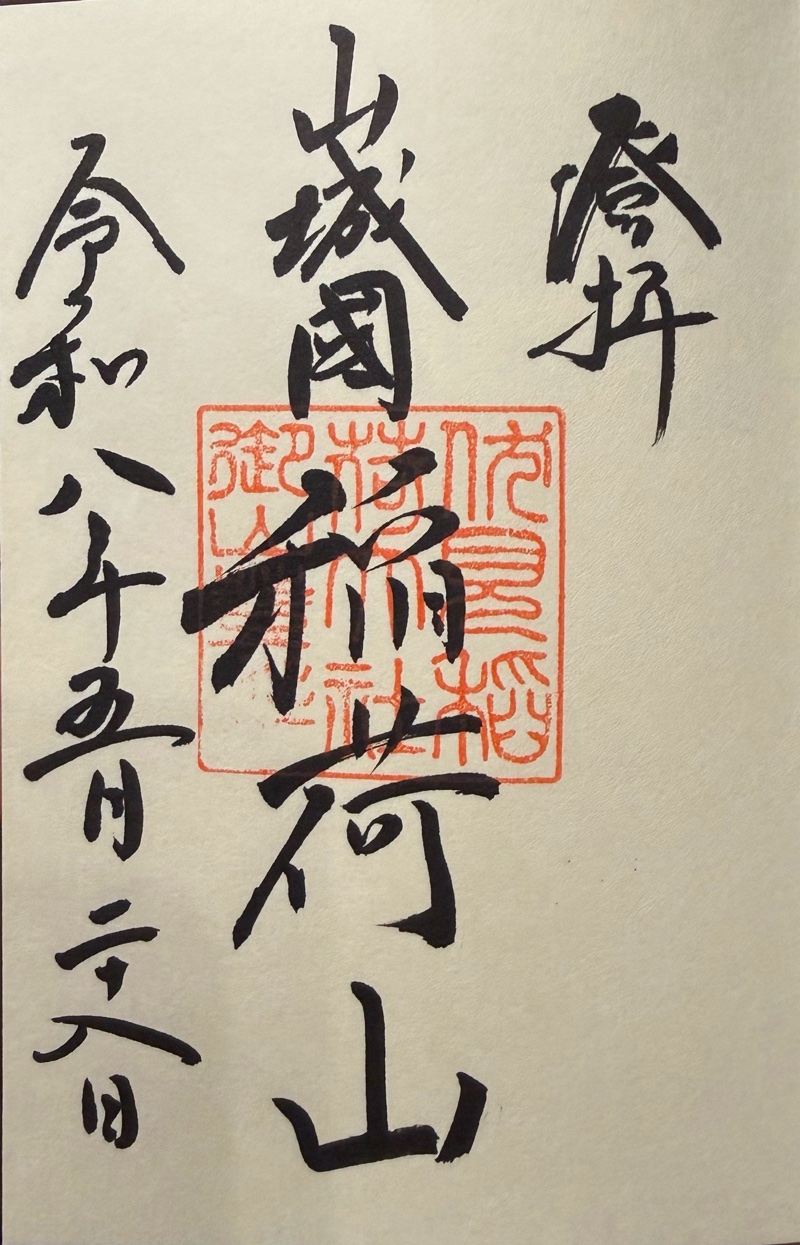 登拝
山城國
稲荷山
令和八年五月二十八日
伏見稲
荷大社
御山